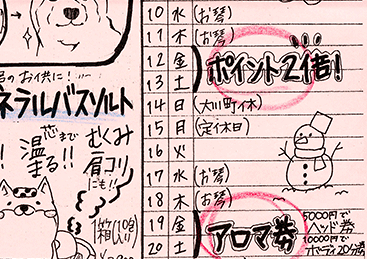 10 水 (お琴)
11 木 (お琴)
12 金
13 土
ポイント2倍!
14 日 (大川町休)
15 月 (定休日)
16 火
17 水 (お琴)
18 木 (お琴)
19 金
20 土
アロマ券
5000円で
ヘッド券
10000円で
ボディ20分券
のお供に!
ネラルバスソルト
芯まで
温まる!!
むくみ
肩コリ
にも!!
1箱(10包入り)